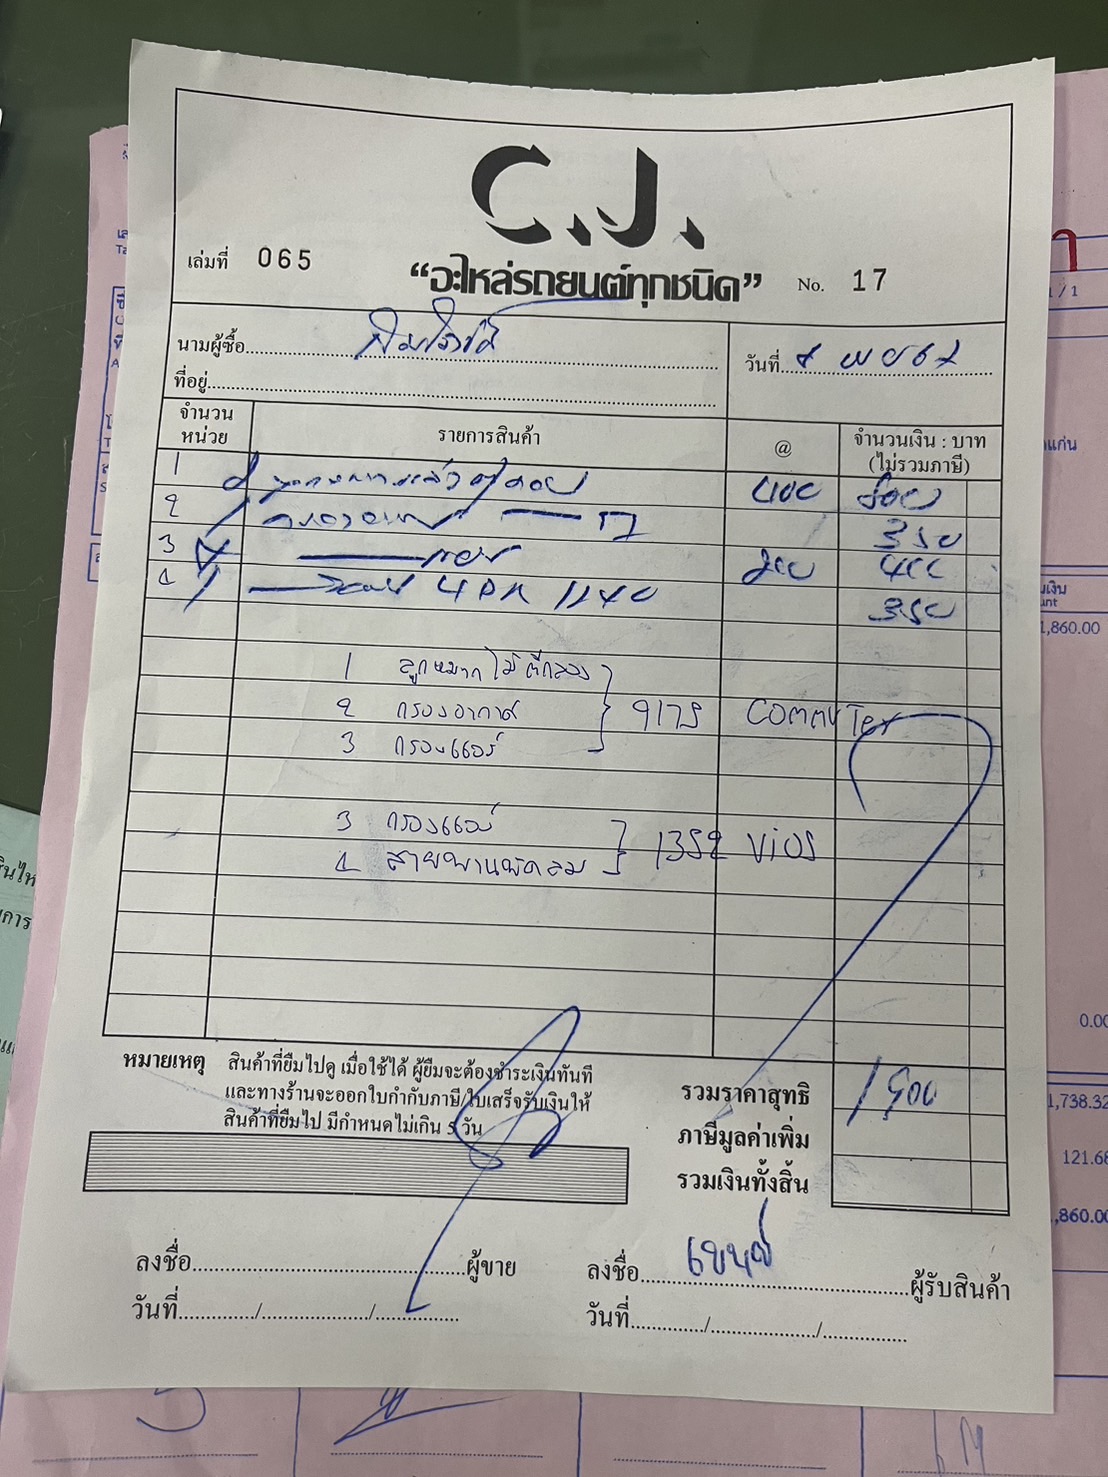 C.J.
เล่มที่ 065
“อะไหล่รถยนต์ทุกชนิด” No. 17
นามผู้ซื้อ
วันที่
ที่อยู่
จำนวน หน่วย รายการสินค้า @ จำนวนเงิน : บาท (ไม่รวมภาษี)
1 2 400 800
2 350
3 2 200 400
4 1 4PK 1140 350
1 ลูกหมากไม้ตีกลอง
2 กรองอากาศ 9175 COMMUTer
3 กรองแอร์
3 กรองแอร์
4 สายพานพัดลม 1352 ViOS
หมายเหตุ สินค้าที่ยืมไปดู เมื่อใช้ได้ ผู้ยืมจะต้องชำระเงินทันที
และทางร้านจะออกใบกำกับภาษี/ใบเสร็จรับเงินให้
สินค้าที่ยืมไป มีกำหนดไม่เกิน 5 วัน
รวมราคาสุทธิ 1900
ภาษีมูลค่าเพิ่ม
รวมเงินทั้งสิ้น
ลงชื่อ ผู้ขาย
ลงชื่อ ผู้รับสินค้า
วันที่ / /
วันที่ / /
1 / 1
1,860.00
0.00
1,738.32
121.68
1,860.00